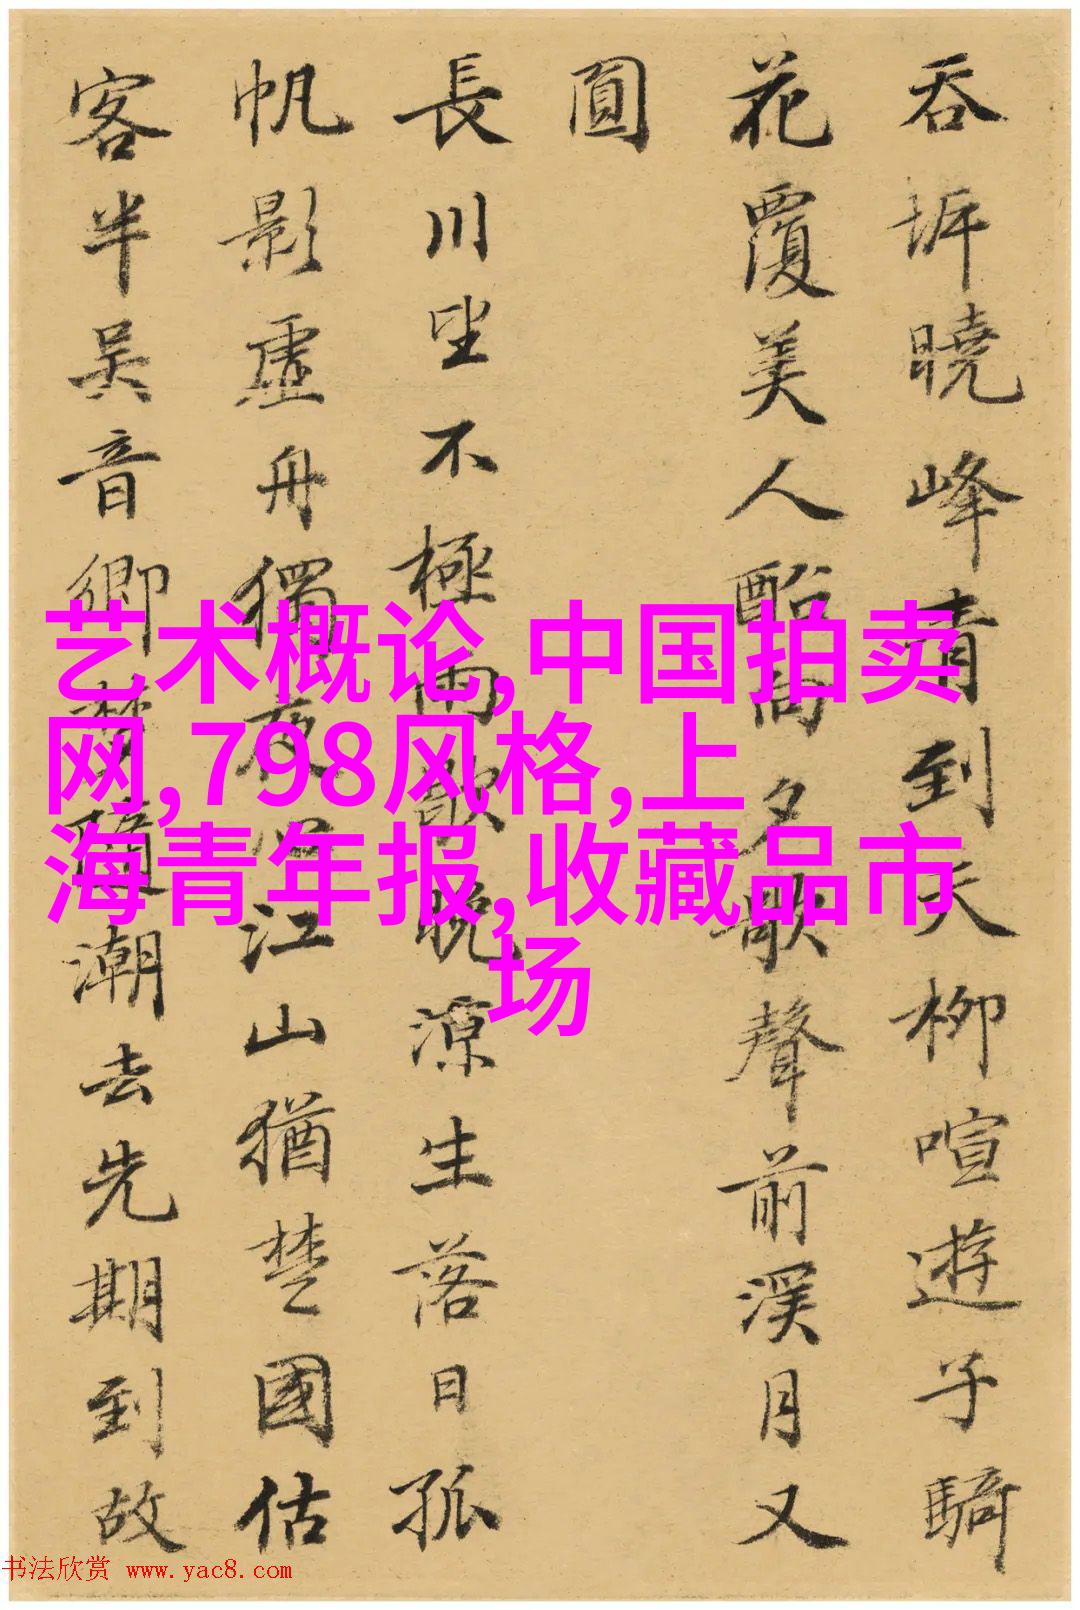 吞坼曉峰青到天柳喧遊子騎
花覆美人船向夕歌聲前溪月又
圓
長川坐不極雨歇晚涼生落日孤
帆影虛舟獨夜心江山猶楚國估
客半吳音鄉夢隨潮去先期到故
艺术概论,中国拍卖
网,798风格,上
海青年报,收藏品市
场
书法欣赏 www.yac8.com